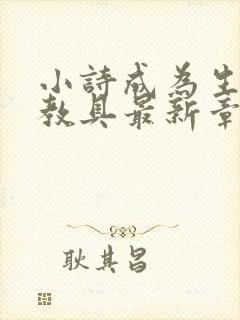 小詩成為生
教具最新章
耿其昌